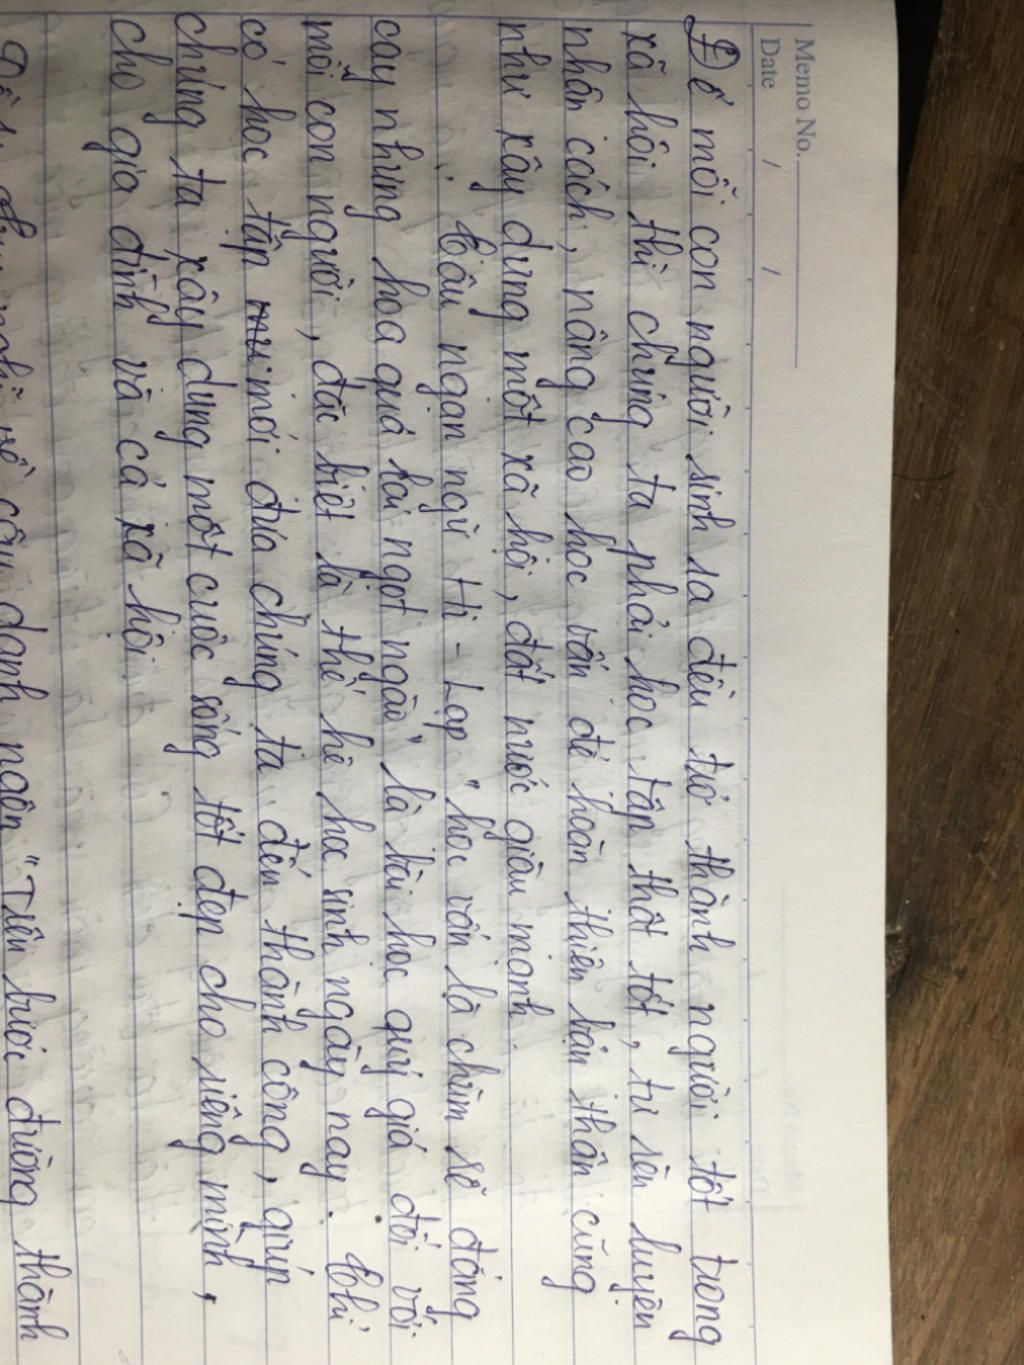 Memo No.
Date / /
Để mỗi con người sinh ra đều trở thành người tốt trong
xã hội thì chúng ta phải học tập thật tốt, tự rèn luyện
nhân cách, nâng cao học vấn để hoàn thiện bản thân cũng
như xây dựng một xã hội, đất nước giàu mạnh.
Câu ngạn ngữ Hi - Lạp "học vấn là chùm rễ đắng
cay nhưng hoa quả lại ngọt ngào" là bài học quý giá đối với
mỗi con người, đặc biệt là thế hệ học sinh ngày nay. Chỉ
có học tập mới đưa chúng ta đến thành công, giúp
chúng ta xây dựng một cuộc sống tốt đẹp cho riêng mình,
cho gia đình và cả xã hội.
nghĩ về câu danh ngôn "Trên bước đường thành